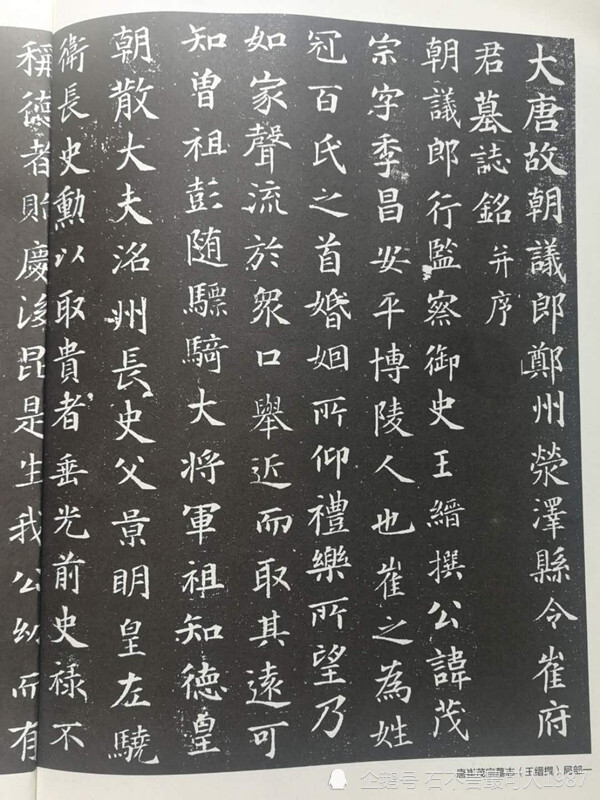 大唐故朝議郎鄭州滎澤縣令崔府
君墓誌銘并序
朝議郎行監察御史王縉撰公諱茂
宗字季昌安平博陵人也崔之為姓
冠百氏之首婚姻所仰禮樂所望乃
如家聲流於衆口舉近而取其遠可
知曾祖彭随驃騎大將軍祖知德皇
朝散大夫洺州長史父景明皇左驍
衛長史勳以取貴者垂光前史禄不
稱德者貽慶後昆是生我公幼而有
唐崔茂宗墓志（王缙撰）局部一
企鹅号